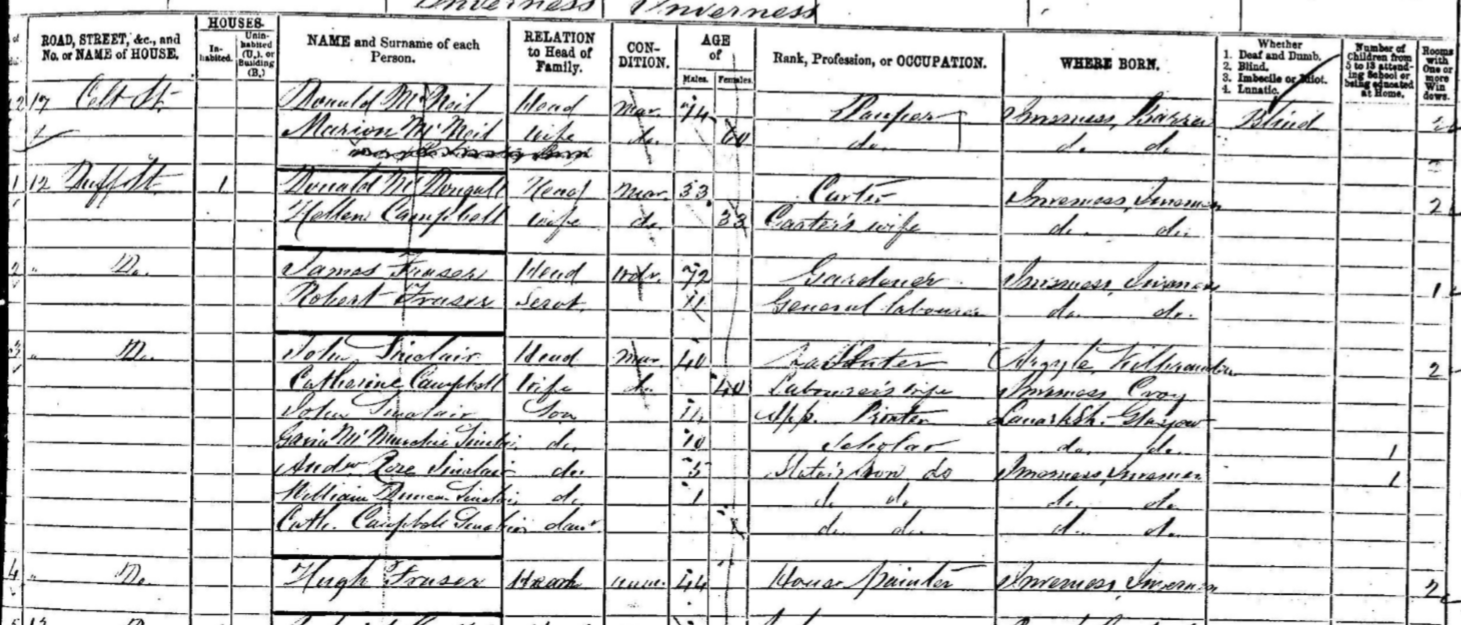 Inverness Inverness
ROAD, STREET, &c., and No. or NAME of HOUSE. HOUSES. Inhabited. Uninhabited (U.), or Building (B.) NAME and Surname of each Person. RELATION to Head of Family. CONDITION. AGE of Males. Females. Rank, Profession, or OCCUPATION. WHERE BORN. Whether 1. Deaf and Dumb. 2. Blind. 3. Imbecile or Idiot. 4. Lunatic. Number of Children from 5 to 13 attending School or being educated at Home. Rooms with One or more Windows.
17 Celt St. Donald McNeil Head Mar. 74 Pauper Inverness, Barra Blind
Marion McNeil Wife do. 60 do. do. do.
1 12 Duff St 1 Donald McDougall Head Mar. 33 Carter Inverness, Inverness 2
Hellen Campbell Wife do. 33 Carter's wife do. do.
2 " Do. James Fraser Head Wdr. 72 Gardener Inverness, Inverness 1
Robert Fraser Servt. General labourer do. do.
3 " Do. John Sinclair Head Mar. 40 Argyle, 2
Catherine Campbell Wife do. 40 Labourer's wife Inverness Croy
John Sinclair Son 14 App. Printer Lanarksh. Glasgow
Gavin McMurchie Sinclair do. 10 Scholar do. do. 1
Andw Rose Sinclair do. 5 do Inverness, Inverness 1
William Duncan Sinclair do. 1 do. do. do. do.
Cath. Campbell Sinclair daur. do. do. do. do.
4 " Do. Hugh Fraser Head unm. 44 House painter Inverness, Inverness 2